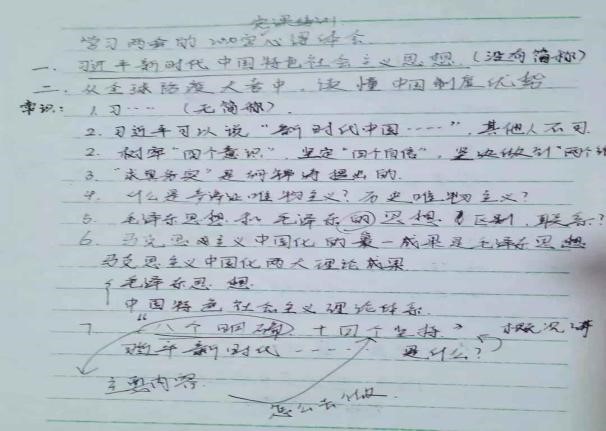 党课培训
学习两会的200字心得体会
一、习近平新时代中国特色社会主义思想.(没有简称)
二、从全球防疫大考中,读懂中国制度优势
常识: 1. 习……(无简称).
2. 习近平可以说“新时代中国……”,其他人不可.
2. 树牢“四个意识”,坚定“四个自信”,坚决做到“两个维
3. “求是务实”是 提出的.
4. 什么是辩证唯物主义?历史唯物主义?
5. 毛泽东思想和毛泽东的思想 区别,联系?
6. 马克思主义中国化的第一成果是毛泽东思想
马克思主义中国化两大理论成果
毛泽东思想
中国特色社会主义理论体系.
7 “八个明确 十四个坚持” 概况
习近平新时代…… 是什么?
主要内容.
怎么去做